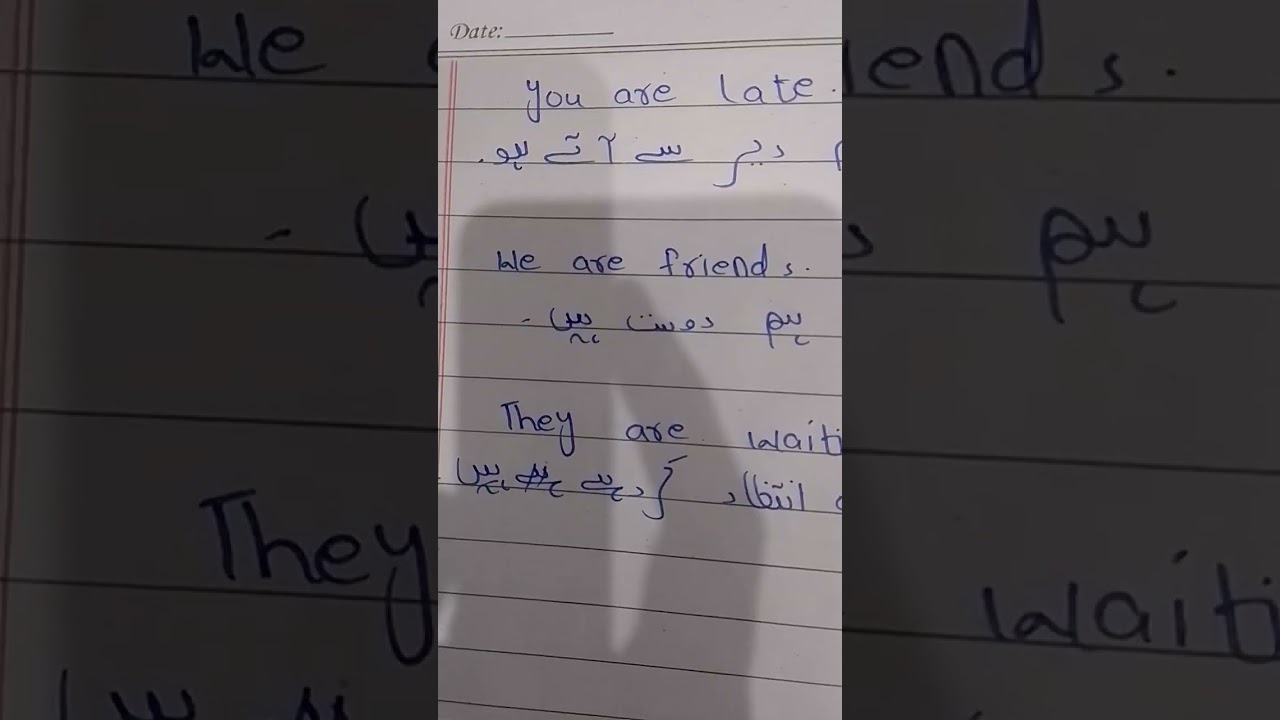 Date:
You are late.
دیر سے آتے ہو.
We are friends.
ہم دوست ہیں -
They are
انتظار کر رہے ہیں